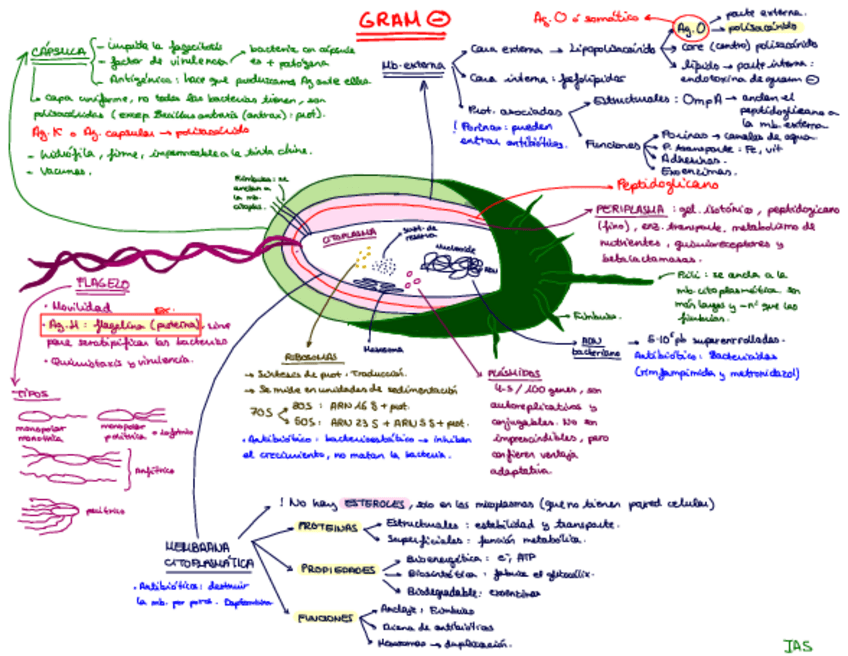 GRAM ⊖
CÁPSULA
- impide la fagocitosis
- factor de virulencia → bacteria con cápsula es + patógena
- Antigénica: hace que produzcamos Ac ante ella
- capa uniforme, no todas las bacterias tienen, son
polisacáridos (excep. Bacillus antracis (antrax): prot).
Ag. K o Ag. capsular → polisacárido
- hidrófila, firme, impermeable a la tinta china.
- vacunas.
Ag. O ó somático
Ag. O
parte externa.
polisacárido
core (centro) polisacárido
lípido → parte interna:
endotoxina de gram ⊖
Mb. externa
Cara externa → Lipopolisacárido
Cara interna: fosfolípidos
Prot. asociadas
! Porinas: pueden
entrar antibióticos.
Estructurales: OmpA → anclan el
peptidoglicano a
la mb. externa
Funciones
Porinas → canales de agua
P. transporte: Fe, vit
Adhesinas.
Exoenzimas.
Fimbrias: se
anclan a
la mb.
citoplas.
CITOPLASMA
sust. de
reserva
Nucleoide
ADN
Peptidoglicano
PERIPLASMA: gel isotónico, peptidoglicano
(fino), enz. transporte, metabolismo de
nutrientes, quimiorreceptores y
betalactamasas.
Pili: se ancla a la
mb. citoplasmática. son
más largos y -nº que las
fimbrias.
Fimbrias
FLAGELO
· Movilidad
· Ag. H: flagelina (proteína). sirve
para serotipificar las bacterias
· Quimiotaxis o virulencia.
TIPOS
monopolar
monotrica
monopolar
politrica o lofotrico
Anfitrico
peritrico
Mesosoma
RIBOSOMAS
→ Síntesis de prot. Traducción.
→ Se mide en unidades de sedimentación
70S
30S: ARN 16 S + prot.
50S: ARN 23 S + ARN 5 S + prot.
· Antibiótico: bacteriostático → inhiben
el crecimiento, no matan la bacteria.
PLÁSMIDOS
4-5 / 100 genes, son
autoreplicativos y
conjugables. No son
imprescindibles, pero
confieren ventaja
adaptativa.
ADN
bacteriano
pb superenrollados.
Antibiótico: Bactericidas
MEMBRANA
CITOPLASMÁTICA
· Antibióticos: destruir
la mb. por poros. Daptomicina
! No hay ESTEROLES, solo en los micoplasmas (que no tienen pared celular)
PROTEINAS
Estructurales: estabilidad y transporte.
Superficiales: función metabólica.
PROPIEDADES
Bioenergética: e⁻, ATP
Biosintética: fabrica el glicocálix.
Biodegradable: exoenzimas
FUNCIONES
Anclaje: Fimbrias
Diana de antibióticos
Mesosomas → duplicación.
JAS